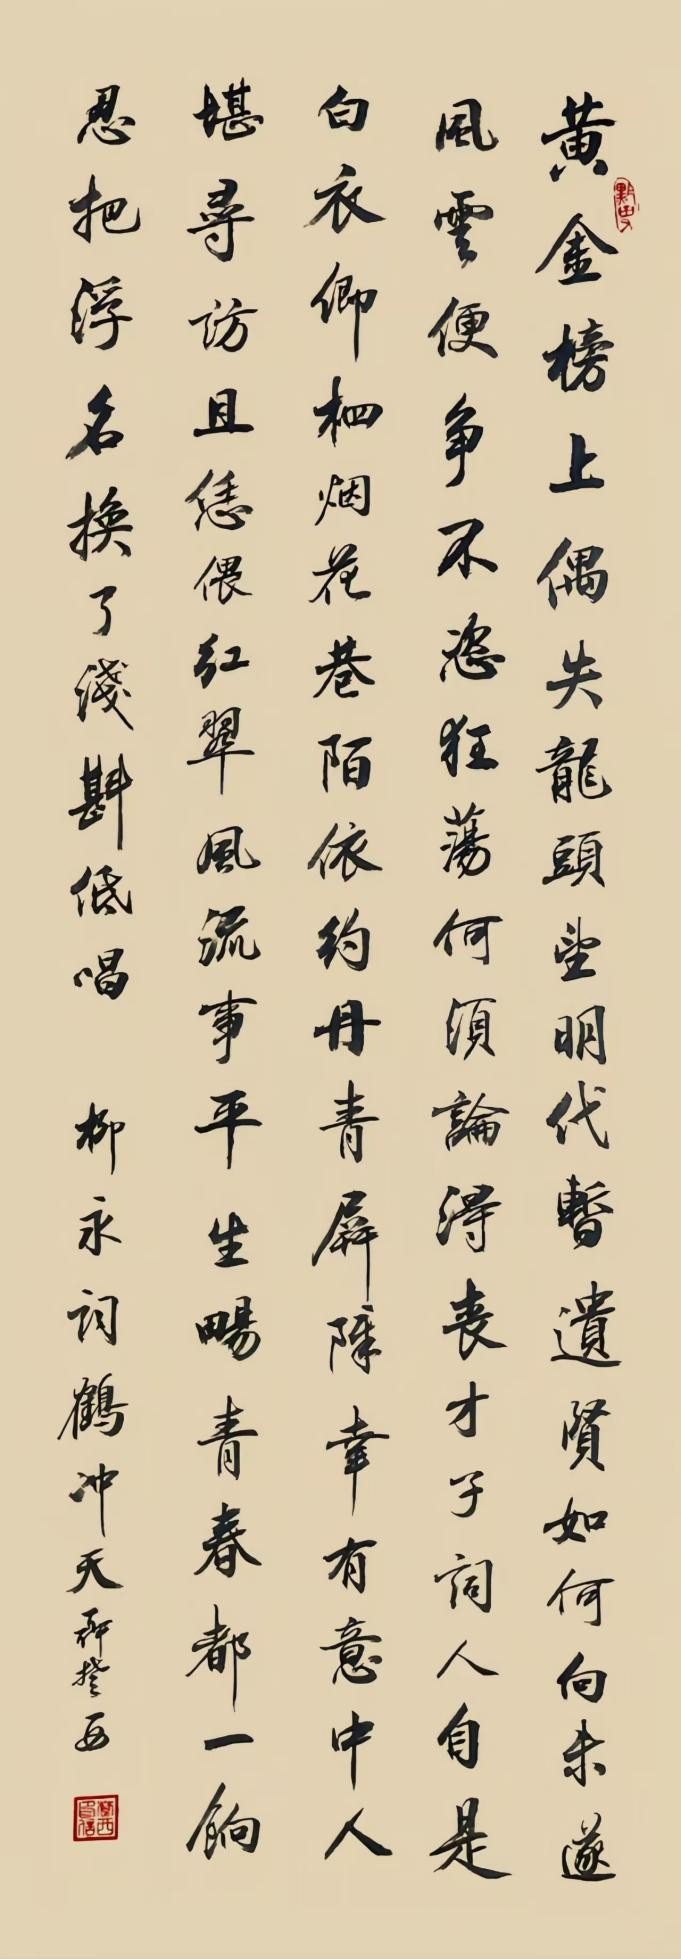 黄金榜上偶失龍頭望明代暫遺賢如何向未遂
風雲便争不恣狂蕩何須論得喪才子詞人自是
白衣卿相烟花巷陌依約丹青屏障幸有意中人
堪尋訪且恁偎紅翠風流事平生暢青春都一餉
忍把浮名換了淺斟低唱 柳永詞鶴冲天